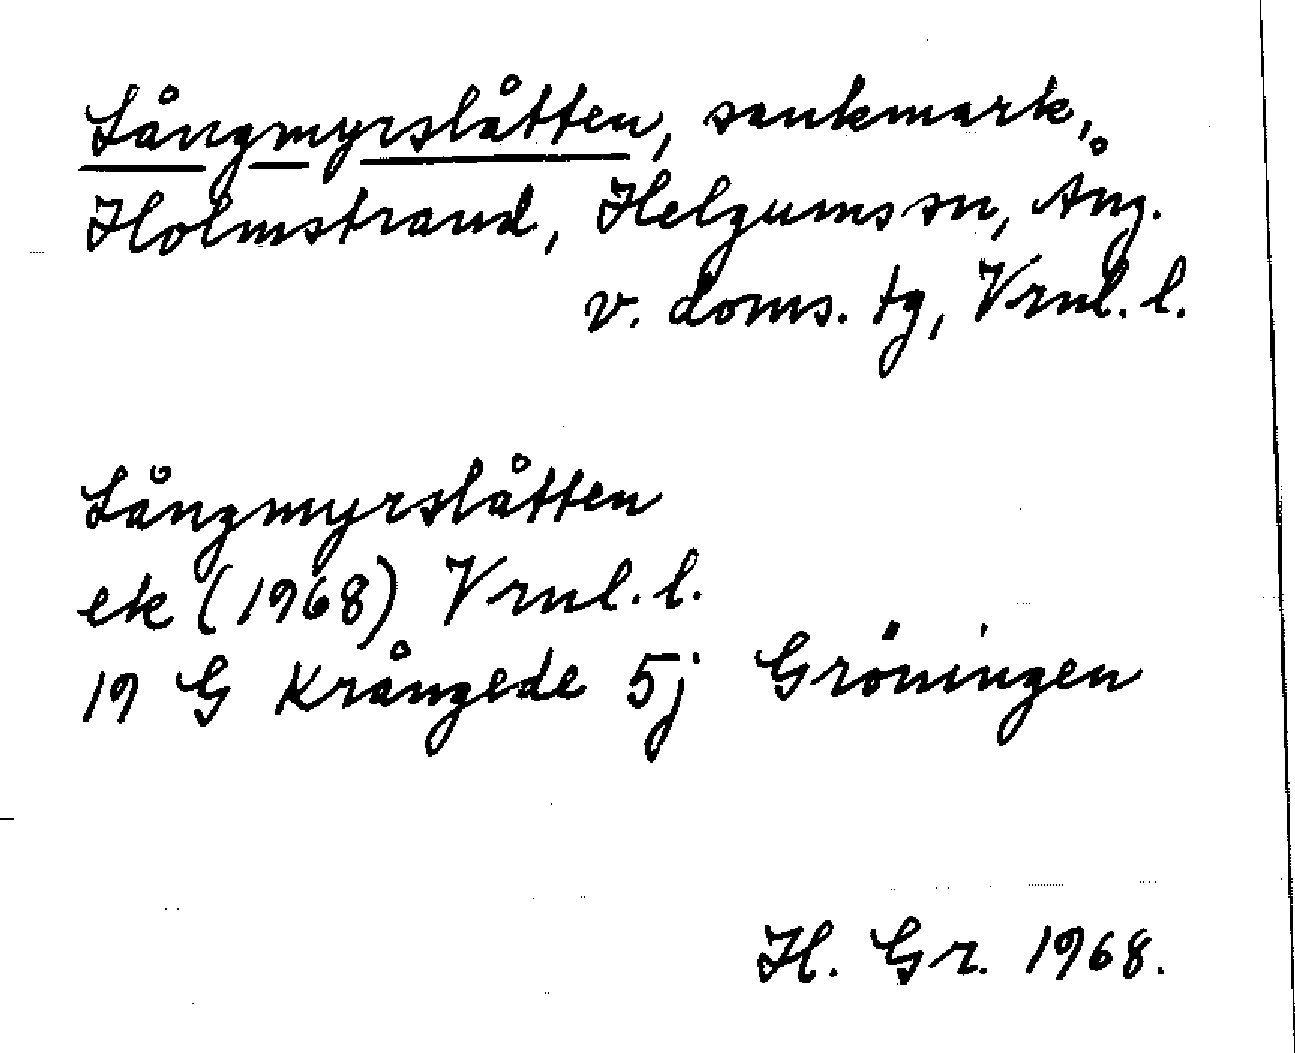 Långmyrslåtten, sankmark,
Holmstrand, Helgums sn, Ång.
v. doms. tg, Vrnl. l.
Långmyrslåtten
ek (1968) Vrnl. l.
19 G Krångede 5j Gröningen
H. Gr. 1968.